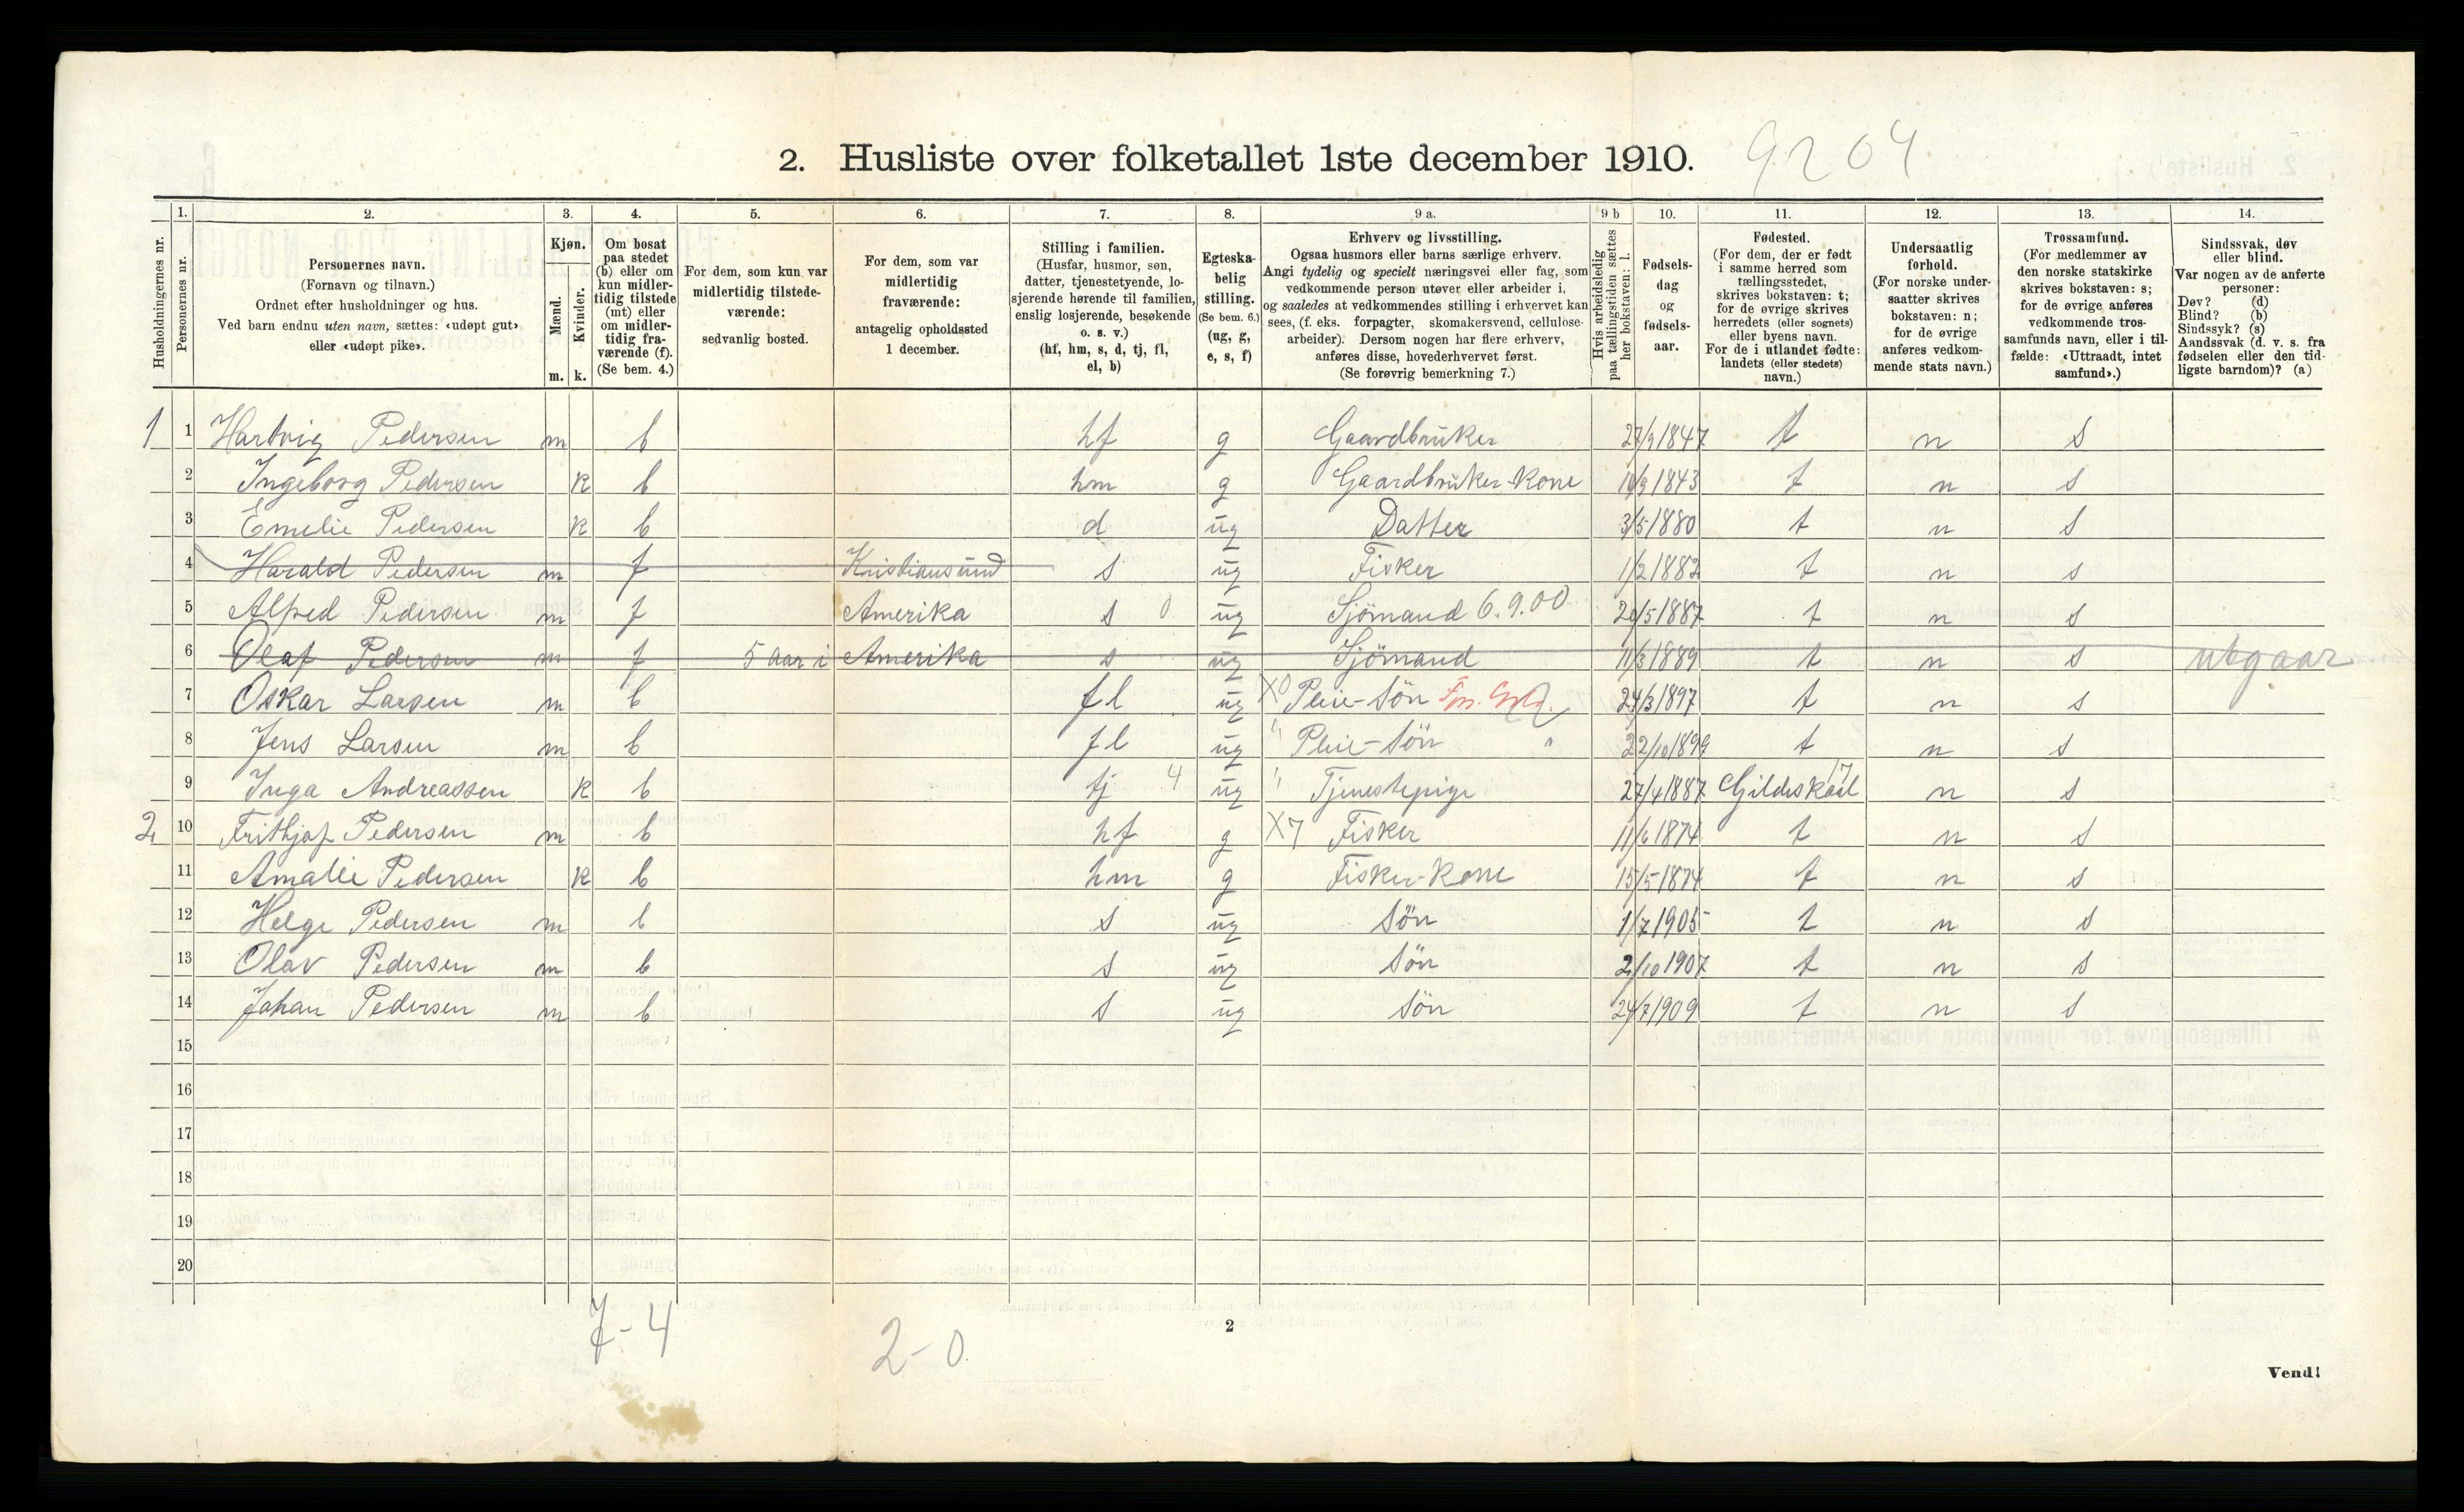 2. Husliste over folketallet 1ste december 1910. 9204
Husholdningernes nr.
1. Personernes nr.
2. Personernes navn.
(Fornavn og tilnavn.)
Ordnet efter husholdninger og hus.
Ved barn endnu uten navn, sættes: «udøpt gut»
eller «udøpt pike».
3. Kjøn.
Mænd. m.
Kvinder. k.
4. Om bosat
paa stedet
(b) eller om
kun midler-
tidig tilstede
(mt) eller
om midler-
tidig fra-
værende (f).
(Se bem. 4.)
5. For dem, som kun var
midlertidig tilstede-
værende:
sedvanlig bosted.
6. For dem, som var
midlertidig
fraværende:
antagelig opholdssted
1 december.
7. Stilling i familien.
(Husfar, husmor, søn,
datter, tjenestetyende, lo-
sjerende hørende til familien,
enslig losjerende, besøkende
o. s. v.)
(hf, hm, s, d, tj, fl,
el, b)
8. Egteska-
belig
stilling.
(Se bem. 6.)
(ug, g,
e, s, f)
9 a. Erhverv og livsstilling.
Ogsaa husmors eller barns særlige erhverv.
Angi tydelig og specielt næringsvei eller fag, som
vedkommende person utøver eller arbeider i,
og saaledes at vedkommendes stilling i erhvervet kan
sees, (f. eks. forpagter, skomakersvend, cellulose-
arbeider). Dersom nogen har flere erhverv,
anføres disse, hovederhvervet først.
(Se forøvrig bemerkning 7.)
9 b Hvis arbeidsledig
paa tællingstiden sættes
her bokstaven: l.
10. Fødsels-
dag
og
fødsels-
aar.
11. Fødested.
(For dem, der er født
i samme herred som
tællingsstedet,
skrives bokstaven: t;
for de øvrige skrives
herredets (eller sognets)
eller byens navn.
For de i utlandet fødte:
landets (eller stedets)
navn.)
12. Undersaatlig
forhold.
(For norske under-
saatter skrives
bokstaven: n;
for de øvrige
anføres vedkom-
mende stats navn.)
13. Trossamfund.
(For medlemmer av
den norske statskirke
skrives bokstaven: s;
for de øvrige anføres
vedkommende tros-
samfunds navn, eller i til-
fælde: «Uttraadt, intet
samfund».)
14. Sindssvak, døv
eller blind.
Var nogen av de anførte
personer:
Døv? (d)
Blind? (b)
Sindssyk? (s)
Aandssvak (d. v. s. fra
fødselen eller den tid-
ligste barndom)? (a)
1 1 Hartvig Pedersen m b hf g Gaardbruker 27/9 1847 t n s
2 Ingeborg Pedersen k b hm g Gaardbruker-Kone 1843 t n s
3 Emelie Pedersen k b d ug Datter 3/5 1880 t n s
4 Harald Pedersen m f Kristiansund s ug Fisker 1/2 1882 t n s
5 Alfred Pedersen m f Amerika s 0 ug Sjömand 6.9.00 20/5 1887 t n s
6 Olaf Pedersen m f 5 aar i Amerika s ug Sjömand 11/3 1889 t n s utgaar
7 Oskar Larsen m b fl ug X0 Pleie-Sön 24/3 1897 t n s
8 Jens Larsen m b fl ug " Pleie-Sön " 22/10 1899 t n s
9 Inga Andreassen k b tj 4 ug " Tjenestepige 27/4 1887 Gildeskaal 17 n s
2 10 Frithjof Pedersen m b hf g X7 Fisker 11/6 1874 t n s
11 Amalie Pedersen k b hm g Fisker-Kone 15/5 1874 t n s
12 Helge Pedersen m b s ug Sön 1/7 1905 t n s
13 Olav Pedersen m b s ug Sön 2/10 1907 t n s
14 Johan Pedersen m b s ug Sön 24/7 1909 t n s
15
16
17
18
19
20
7-4
2-0
2
Vend!